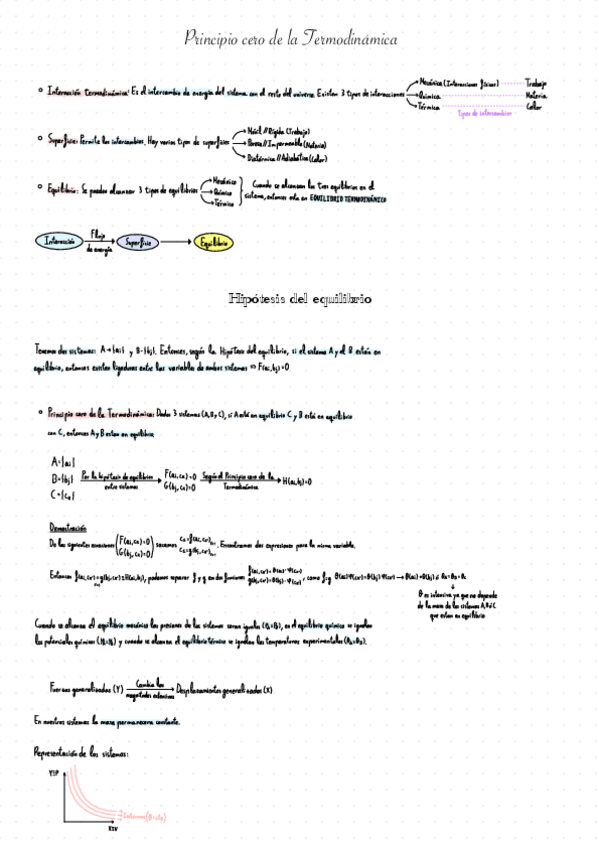 Principio cero de la Termodinámica
Interacción termodinámica: Es el intercambio de energía del sistema con el resto del universo. Existen 3 tipos de interacciones
Mecánica (Interacciones físicas) Trabajo
Química Materia
Térmica Calor
Tipos de intercambios
Superficie: Permite los intercambios. Hay varios tipos de superficies
Móvil // Rígida (Trabajo)
Porosa // Impermeable (Materia)
Diatérmica // Adiabática (Calor)
Equilibrio: Se pueden alcanzar 3 tipos de equilibrios
Mecánico
Químico
Térmico
Cuando se alcanzan los tres equilibrios en el
sistema, entonces esta en EQUILIBRIO TERMODINÁMICO
Interacción Flujo de energía Superficie Equilibrio
Hipótesis del equilibrio
Tenemos dos sistemas: A=|ai| y B=|bj|. Entonces, según la Hipótesis del equilibrio, si el sistema A y el B están en
equilibrio, entonces existen ligaduras entre las variables de ambos sistemas => F(ai,bj)=0
Principio cero de la Termodinámica: Dados 3 sistemas (A,B y C), si A está en equilibrio C y B está en equilibrio
con C, entonces A y B estan en equilibrio
A=|ai|
B=|bj| Por la hipótesis de equilibrio entre sistemas F(ai,cκ)=0 Según el Principio cero de la Termodinámica H(ai,bj)=0
C=|cκ| G(bj,cκ)=0
Demostración
De las siguientes ecuaciones F(ai,cκ)=0 G(bj,cκ)=0 sacamos. Encontramos dos expresiones para la misma variable.
Entonces, podemos separar f y g en dos funciones, como f=g
θ es intensiva ya que no depende
de la masa de los sistemas A, B o C
que estan en equilibrio
Cuando se alcanza el equilibrio mecánico las presiones de los sistemas seran iguales, en el equilibrio químico se igualan
los potenciales químicos y cuando se alcanza el equilibrio térmico se igualan las temperaturas experimentales.
Fuerzas generalizadas (Y) Cambia las magnitudes extensivas Desplazamientos generalizados (X)
En nuestros sistemas la masa permanecera constante.
Representación de los sistemas:
Y≡P
Isotermas
X≡V